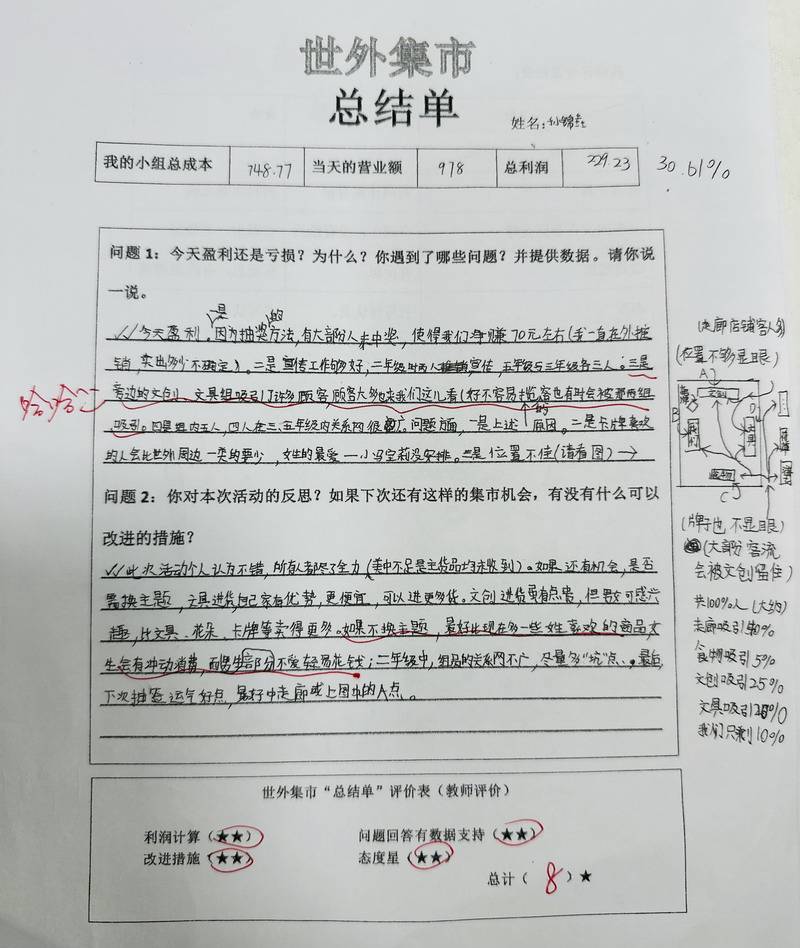 世外集市
总结单
姓名:孙锦
我的小组总成本 748.77 当天的营业额 978 总利润 229.23 30.61%
问题1:今天盈利还是亏损?为什么?你遇到了哪些问题?并提供数据。请你说
一说。
今天盈利。是因为抽奖的方法,有大部分人未中奖,使得我们净赚70元左右(我一直在外推
销,卖出多少不确定)。二是宣传工作够好,二年级时两人推销宣传,五年级与三年级各三人。三是
旁边的文创、文具组吸引了许多顾客,顾客大多也来我们这儿看(好不容易揽客也有时会被那两组
吸引。四是组内五人,四人在三、五年级内关系网很广。问题方面,一是上述的原因。二是卡牌喜欢
的人会比世外周边一类的要少,女性的最爱——小马宝莉没安排。三是位置不佳(请看图)→
哈哈
(走廊店铺客人多)
(位置不够显眼)
A
B
C
D
文创
文具
食物
我们
走廊
(牌子也不显眼)
(大部分客流
会被文创留住)
共100%人(大约)
走廊吸引40%
食物吸引5%
文创吸引25%
文具吸引20%
我们只剩10%
问题2:你对本次活动的反思?如果下次还有这样的集市机会,有没有什么可以
改进的措施?
此次活动个人认为不错,所有人都尽了全力(美中不足是主货品均未收到)。如果还有机会,是否
需换主题,文具进货自己家有优势,更便宜,可以进更多货。文创进货虽有点贵,但男女可感兴
趣,比文具、花朵、卡牌等卖得更多。如果不换主题,最好比现在多一些女性喜欢的商品,女
生会有冲动消费,而男生部分不爱轻易花钱;二年级中,组员的关系网不广,尽量多“坑”点。最后,
下次抽签运气好点,最好中走廊或上图中的A点。
世外集市“总结单”评价表(教师评价)
利润计算(★★) 问题回答有数据支持(★★)
改进措施(★★) 态度星(★★)
总计(8)★